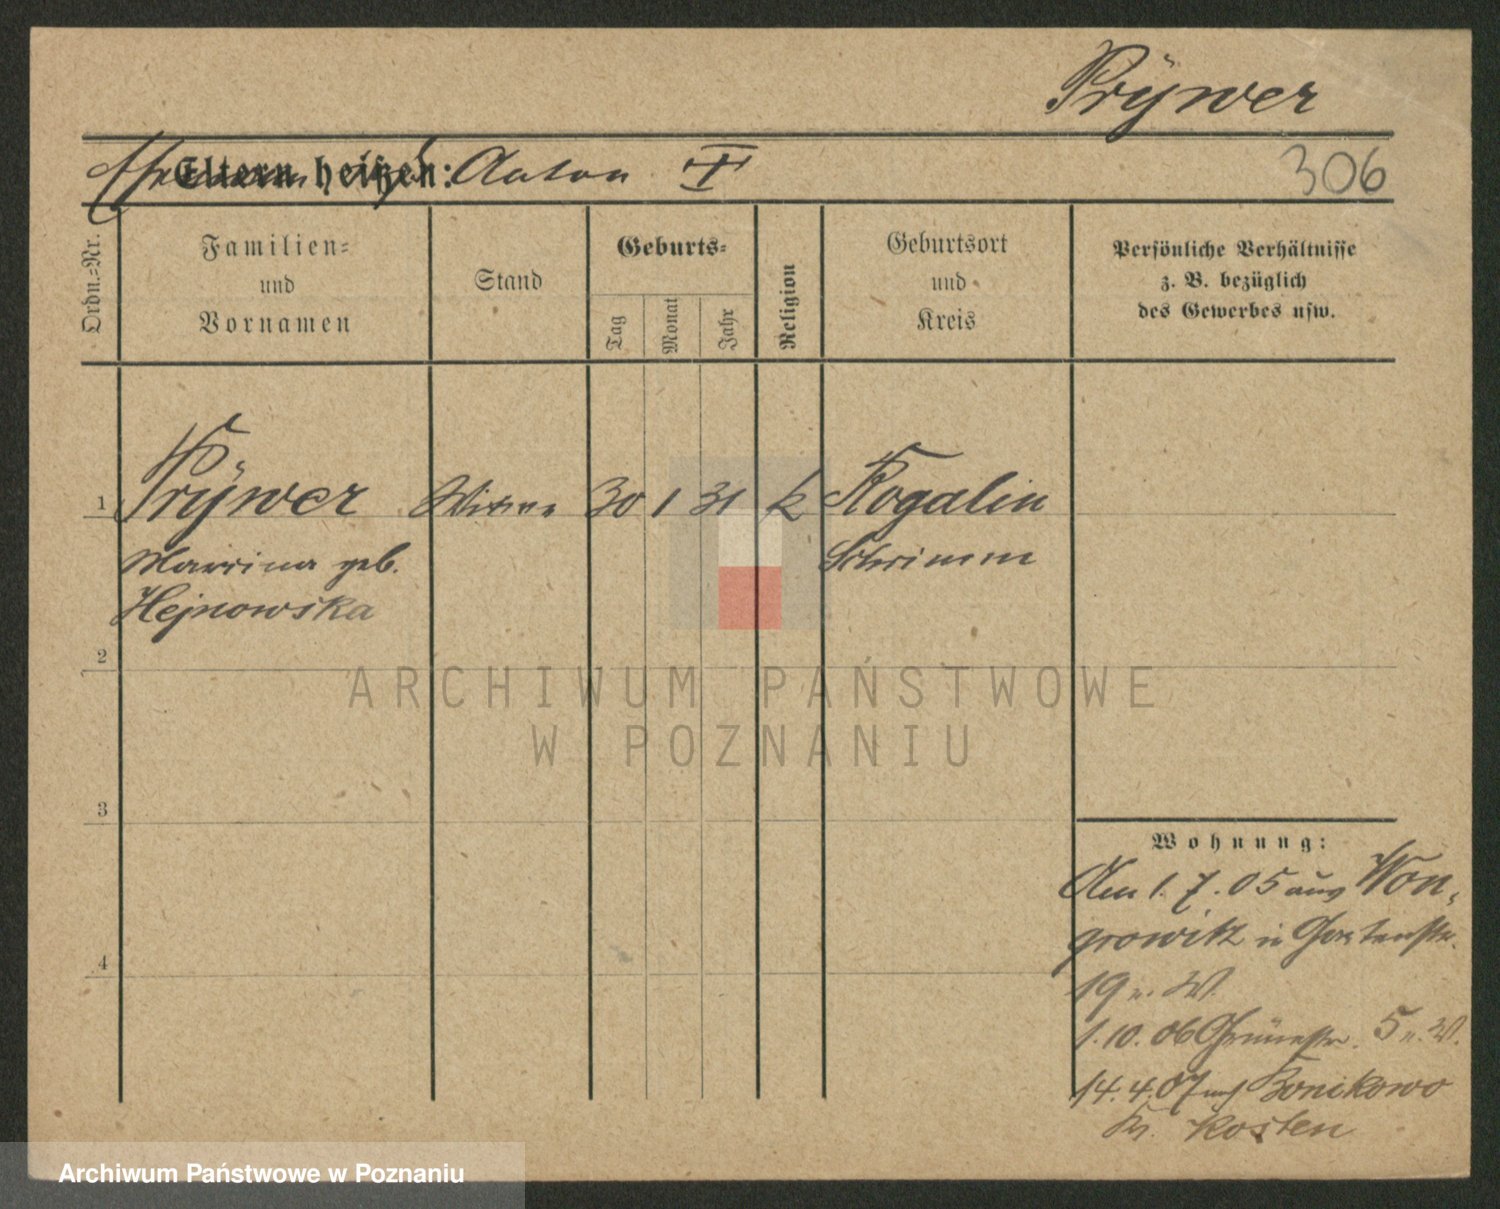 Prÿwer
306
Eltern heißen: Anton †
Ordn.=Nr.
Familien=
und
Vornamen
Stand
Geburts=
Tag
Monat
Jahr
Religion
Geburtsort
und
Kreis
Persönliche Verhältnisse
z. B. bezüglich
des Gewerbes usw.
1 Prÿwer Witwe 30 1 31 k Rogalin
geb. Schrimm
Hejnowska
2
3
4
ARCHIWUM PAŃSTWOWE
W POZNANIU
Wohnung:
Am 1. 7. 05 aus Won,
growitz in Gartenstr.
19 n. W.
1. 10. 06 Grünestr. 5 n. W.
14. 4. 07 nach Bonikowo
Kr. Kosten
Archiwum Państwowe w Poznaniu